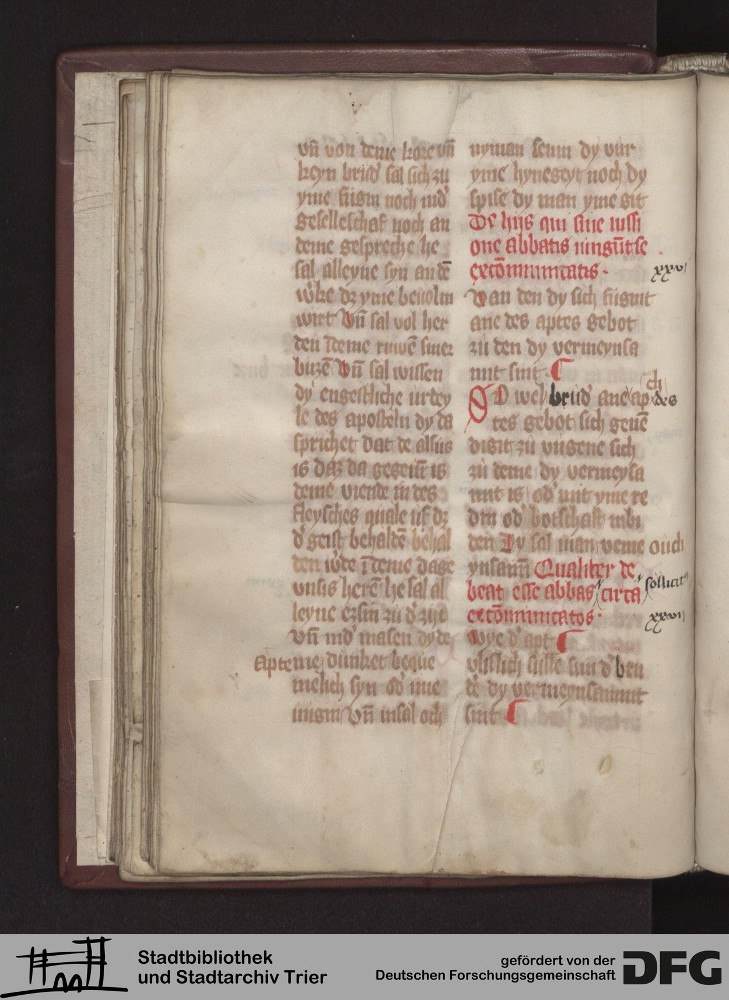 vn̄ von deme kore vn̄
keyn brud' sal sich zu
yme fugin noch mid'
geselleschaf noch an
deme gespreche he
sal alleyne syn an dē
w'ke dz yme beuolin
wirt Vn̄ sal vol her
den ī deme ruwē siner
buzē Vn̄ sal wissen
dy engestliche urtey
le des aposteln dy da
sprichet dat de alsus
is daz da gegeuin is
deme viende in des
fleysches quale uf dz
d' geist behaldē behal
den w'de ī deme dage
vnsis herē he sal al
leyne ezsin zu d' zijt
Vn̄ md' masen dy de
Apte me dunket beque
melich syn od' nie
mgin Vn̄ insal och
nyman seuin dy vur
yme hyne geyt noch dy
spise dy man yme git
De hijs qui sine iussi
one abbatis iungūt se
excōmunicatis · xxv
Van den dy sich fugint
ane des aptes gebot
zu den dy vermeynsa
mit sint
OD welch brud' ane ap des
tes gebot sich geuē
digit zu vugene sich
zu deme dy vermeysa
mit is od' mit yme re
din od' botschaft inbi
den Dy sal man veme ouch
ynsamī Qualiter de
beat esse abbas circa sollicit9
excōmunicatos · xxvi
Wye d' apt
vlislich sulle sin d' bru
de dy vermeynsammit
sint
Stadtbibliothek
und Stadtarchiv Trier
gefördert von der
Deutschen Forschungsgemeinschaft
DFG